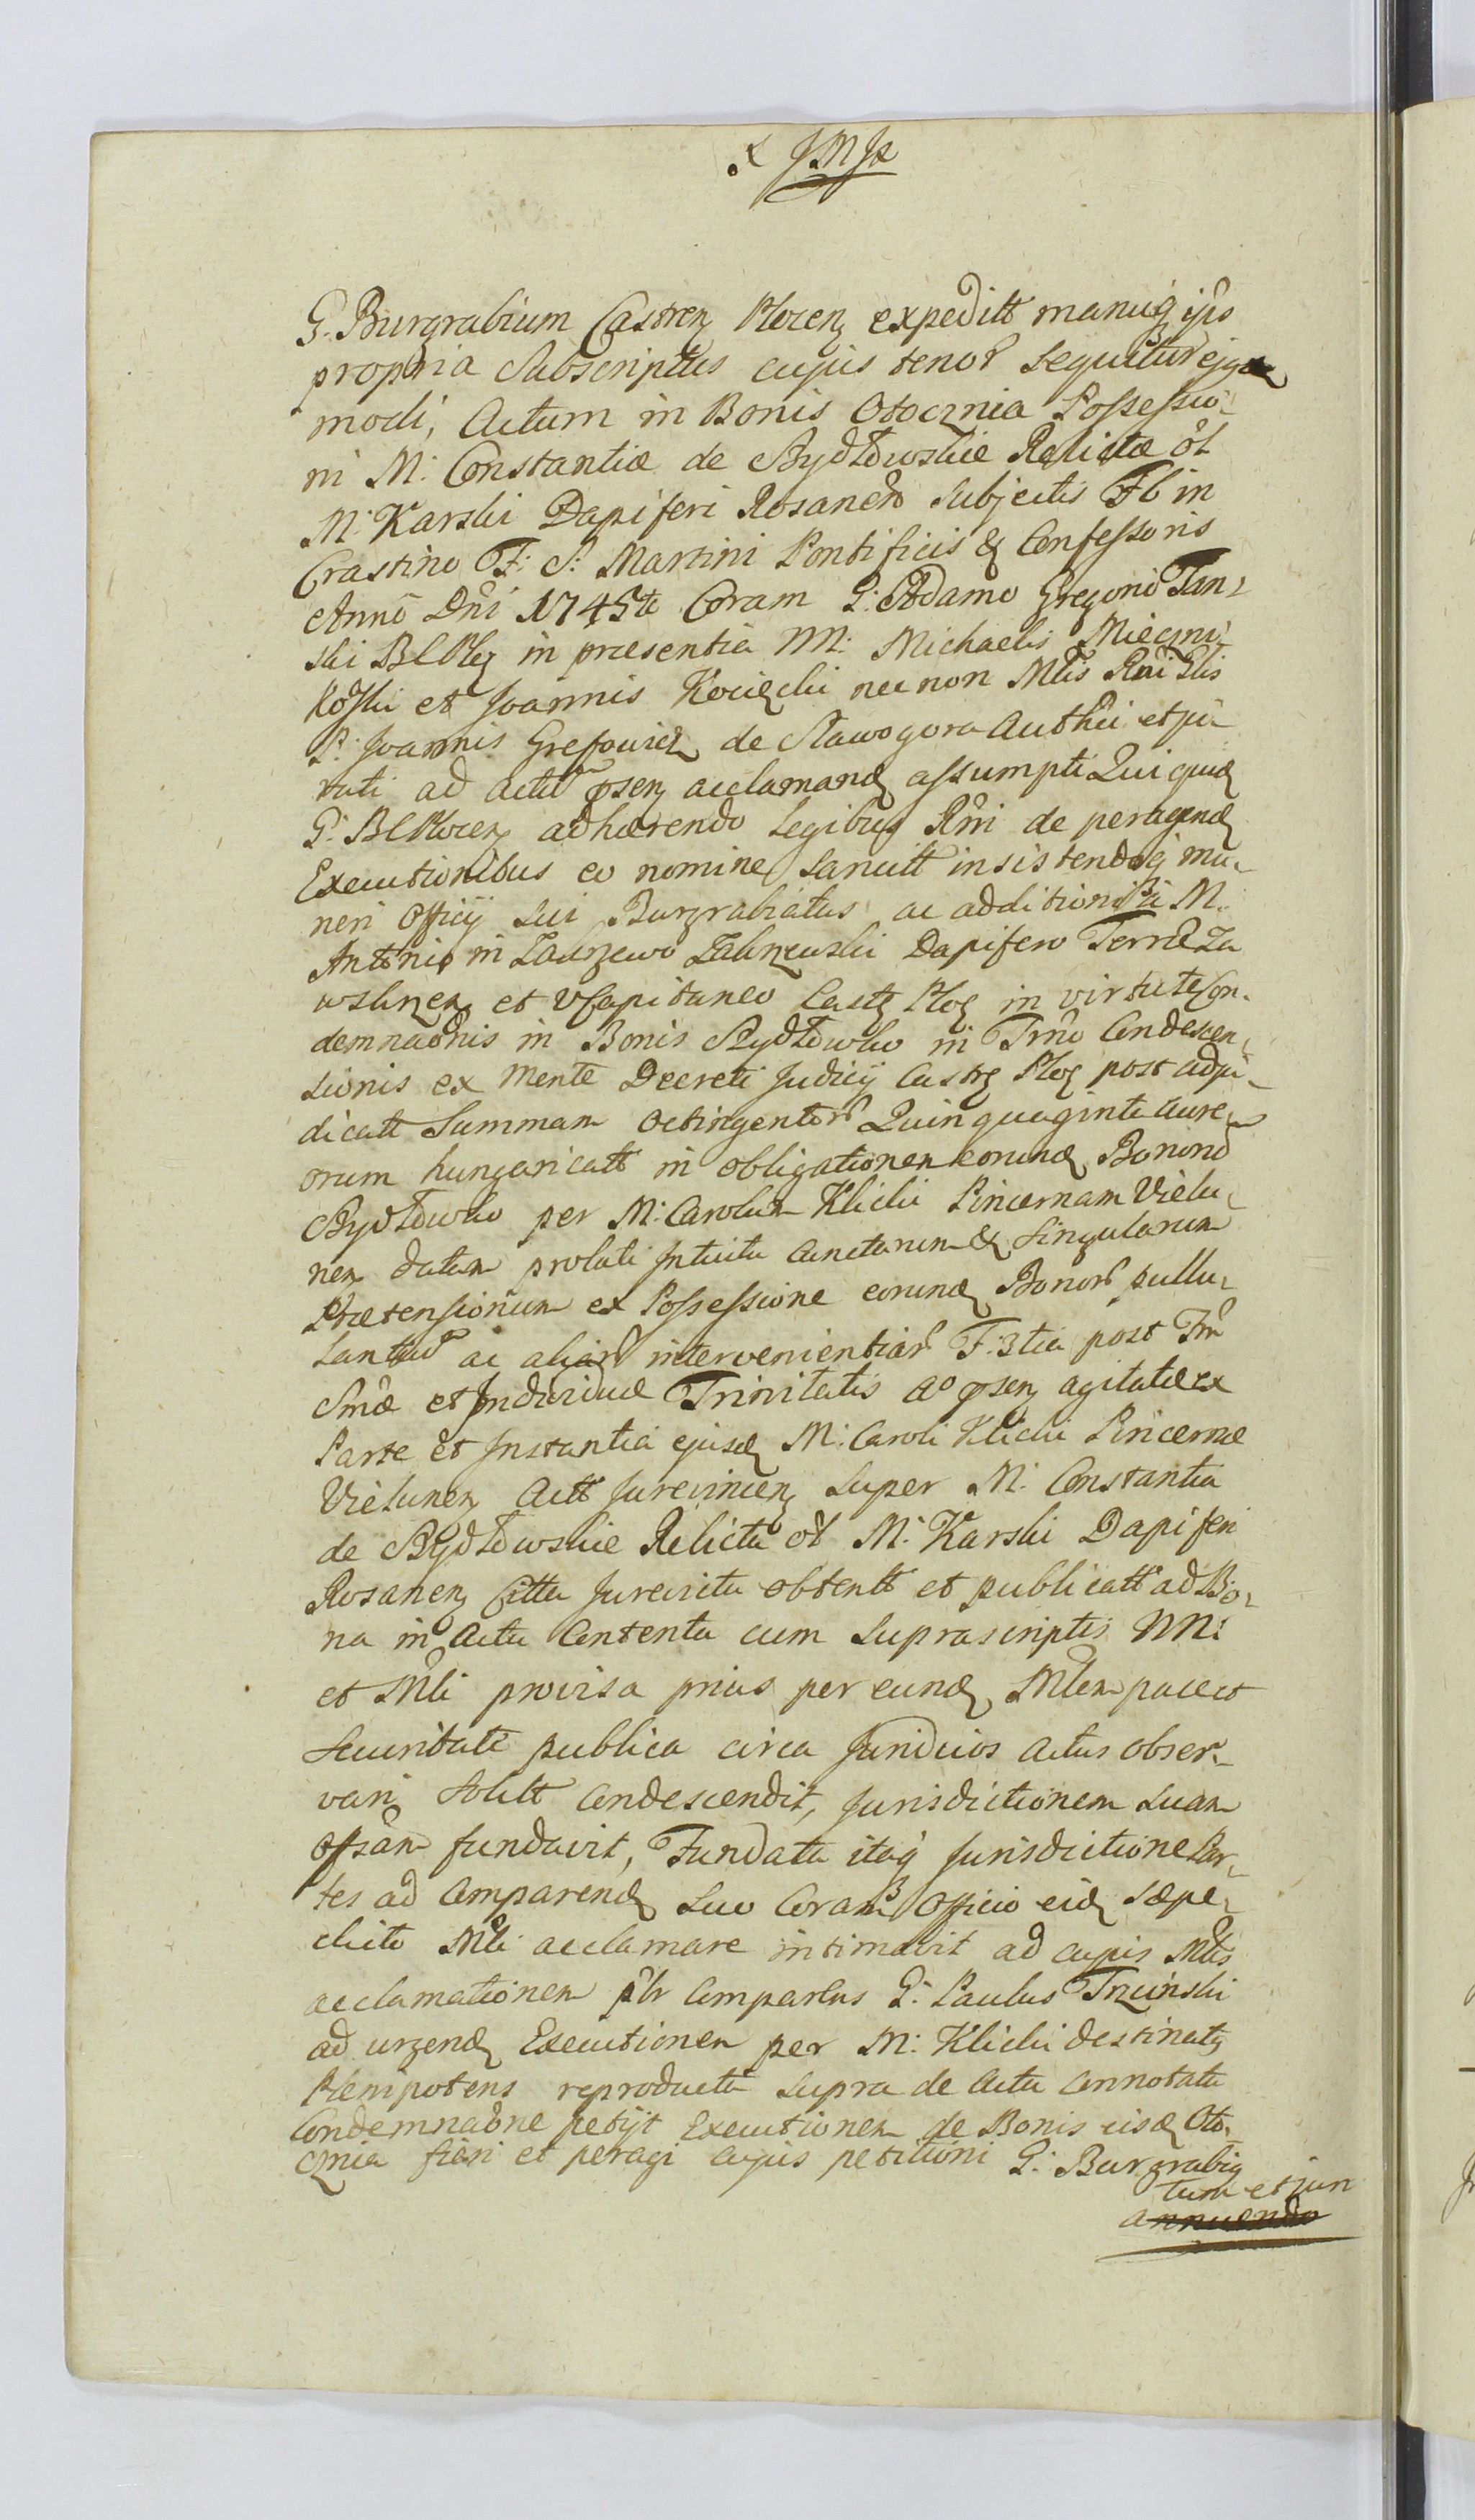 G. Burgrabium Castren Plocen expeditt manuq ipš
propria Subscriptus cujus tenor sequitur ejq
modi, Actum in Bonis Otocznia Possessio-
ni M. Constantiæ de Szydłowskie Relictæ ol
M. Karski Dapiferi Rosanen Subjectis Fb in
Crastino F. S. Martini Pontificis & Confessoris
Anno Dni 1745to Coram G. Adamo Gregorio Tan-
ski BCPlo in præsentia MM. Michaelis Mieczni
kosski et Joannis Kocięcki nec non Mlis Rni Glis
P. Joannis Gressowicz de Sławogora Authci et ju
rati ad actū psen acclamand assumpti Qui quid
G. BCPlocen adhærendo Legibus Rni de peragend
Executionibus eo nomine Sancitt insistendoq mu-
neri Officij Sui Burgrabiatus ac additioni M.
Antonio in Zaluzewo Zaluzewski Dapifero Terræ Za
wskrzen et VCapitaneo Castr Ploc in virtute Con-
demnaonis in Bonis Szydłowko in Trno Condescen-
sionis ex Mente Decreti Judicij Castr Ploc post adju-
dicatt Summam Octingentor Quinquaginta aure-
orum hungaricatt in obligationem eorund Bonorū
Szydłowko per M. Carolum Klicki Pincernam Vielu-
nen datam prolati Intuitu Cunctarum & Singularum
Prætensionum ex Possessione eorund Bonor pullu-
lantiū ac aliar intervenientiar F. 3tia post Fm
Smæ et Individuæ Trinitatis Ao psen agitatæ ex
Parte et Instantia ejusd M. Caroli Klicki Pincernæ
Vielunen Actt Jurevincen Super M. Constantia
de Szydłowskie Relicta ol M. Karski Dapiferi
Rosanen Citta Jurevicta obtentt et publicatt ad Bo-
na in Actu Contenta cum Suprascriptis MM.
et Mli provisa prius per eund Mlem pace et
Securitate publica circa Juridicos Actus obser-
vari Solitt Condescendit, Jurisdictionem Suam
Offsam fundavit, Fundata itaq Jurisdictione Par-
tes ad Comparend Suo Coram Officio eid sæpe-
dicto Mli acclamare intimavit ad cujus Mlis
acclamationem plr Comparens G. Paulus Trzcinski
ad urgend Executionem per M. Klicki destinatq
Plenipotens reproducta Supra de Actu Connotata
Condemnaone petijt Executionem de Bonis eisd Oto-
cznia fieri et peragi cujus petitioni G. Burgrabiq
tum et jun
annuendo